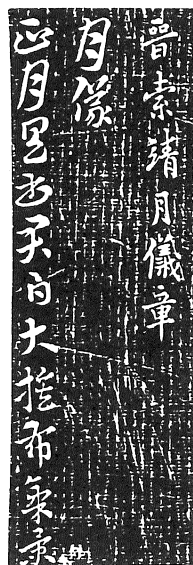 晉索靖月儀章
月儀
正月具書君白大蔟布氣景